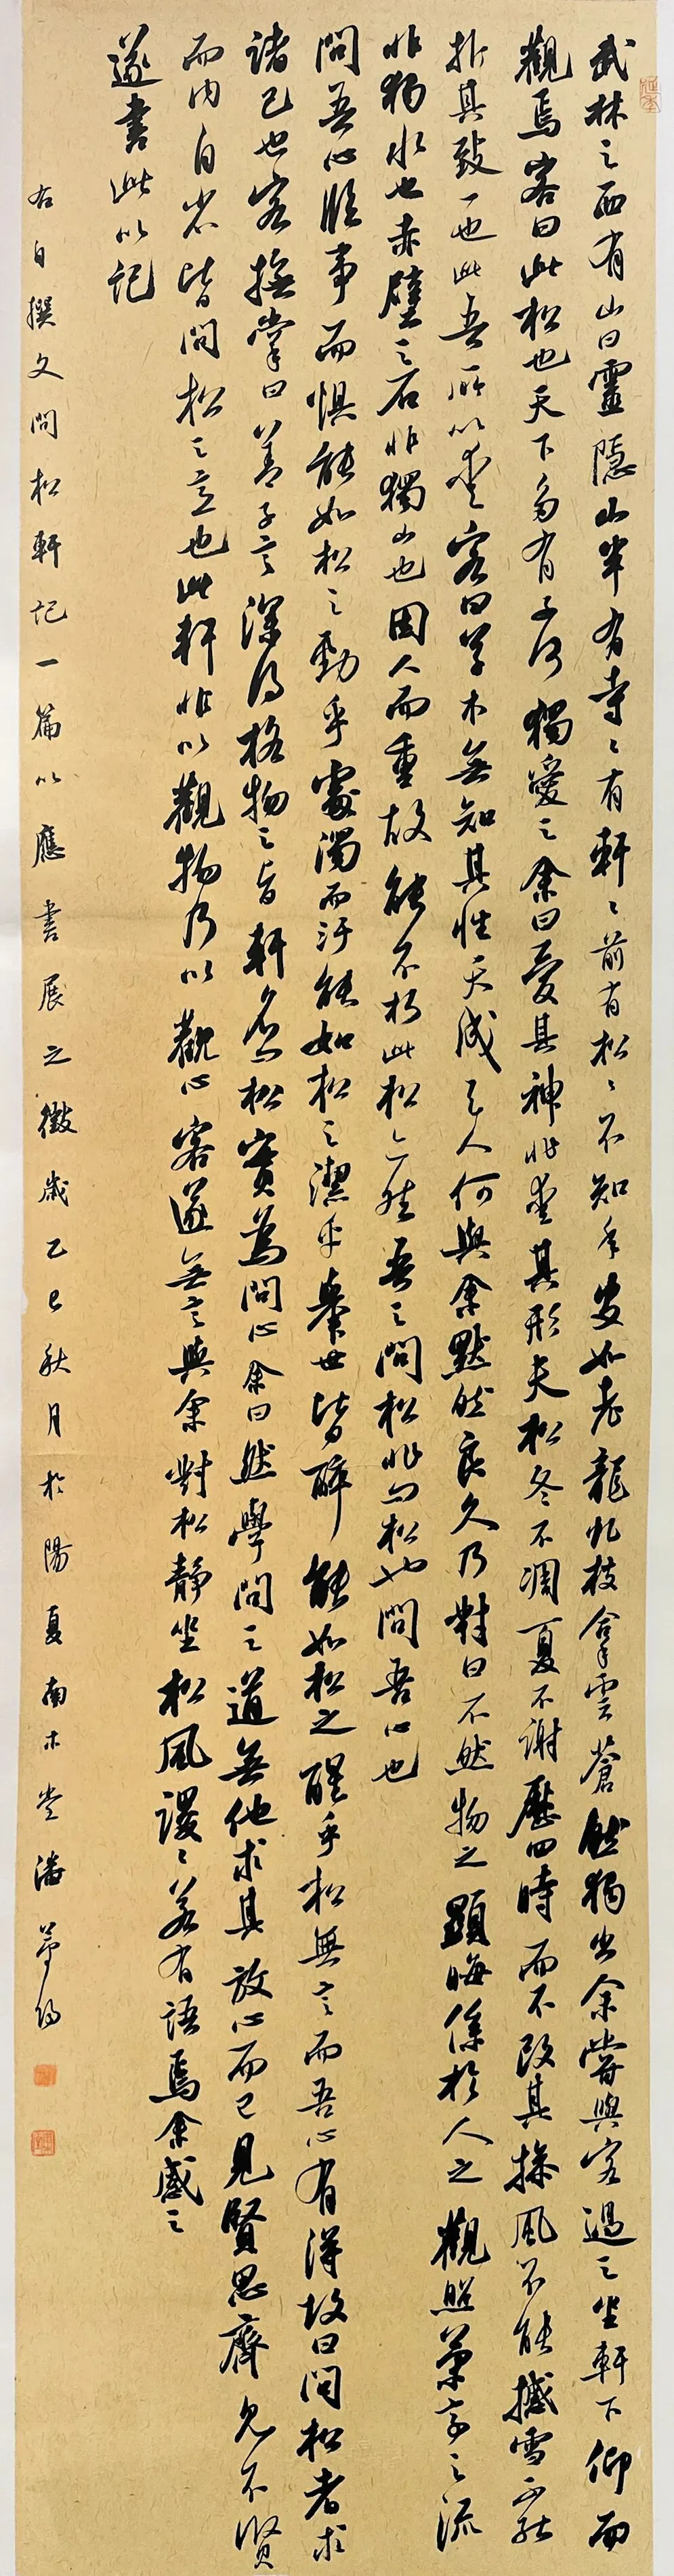 武林之西有山曰靈隱山半有寺〻有軒〻前有松〻不知年歲如老龍虬枝拿雲蒼然獨出余嘗與客過之坐軒下仰而
觀焉客曰此松也天下多有子何獨愛之余曰愛其神非愛其形夫松冬不凋夏不謝歷四時而不改其操風不能撼雪不能
折其致一也此吾所以愛客曰草木無知其性天成于人何與余默然良久乃對曰不然物之顯晦係於人之觀照蘭亭之流
非獨水也赤壁之石非獨山也因人而重故能不朽此松亦然吾之問松非問松也問吾心也
問吾心臨事而懼能如松之勁乎處濁而汙能如松之潔乎舉世皆醉能如松之醒乎松無言而吾心有得故曰問松者求
諸己也客撫掌曰善子言深得格物之旨軒名為松實為問心余曰然學問之道無他求其放心而已見賢思齊見不賢
而內自省皆問松之意也此軒非以觀物乃以觀心客遂無言與余對松靜坐松風謖〻若有語焉余感之
遂書此以記
右自撰文問松軒記一篇以應書展之徵歲乙巳秋月於陽夏南木堂潘